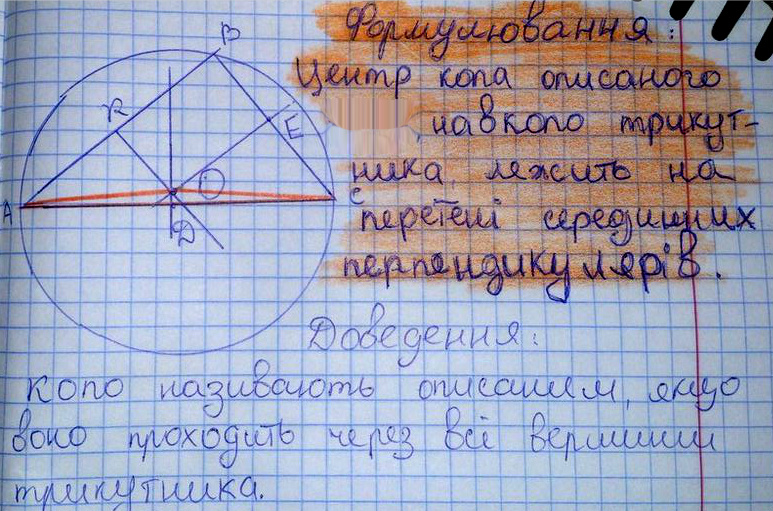 Формулювання:
Центр кола описаного
навколо трикут-
ника, лежить на
перетені серединних
перпендикулярів.
B
K
E
O
A
C
D
Доведення:
Коло називають описаним, якщо
воно проходить через всі вершини
трикутника.